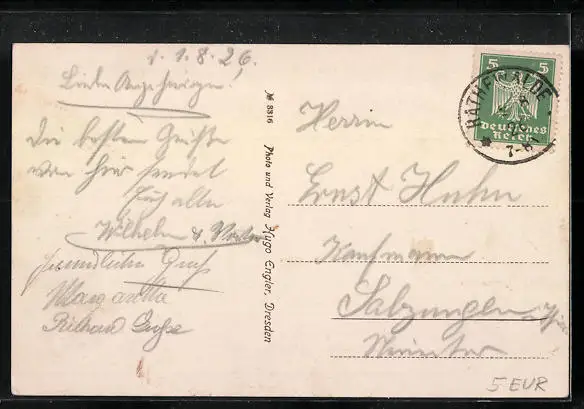 1.8.26.
Liebe Angehörigen.
Die besten Grüße
von hier sendet
Euch allen
Wilhelm u.
freundlichen Gruß
Margarethe
Richard
№ 8316
Photo und Verlag Hugo Engler, Dresden
5 5
Deutsches
Reich
RATHEWALDE
7-8
Herrn
Ernst Huhn
Kaufmann
Salzungen
5 EUR